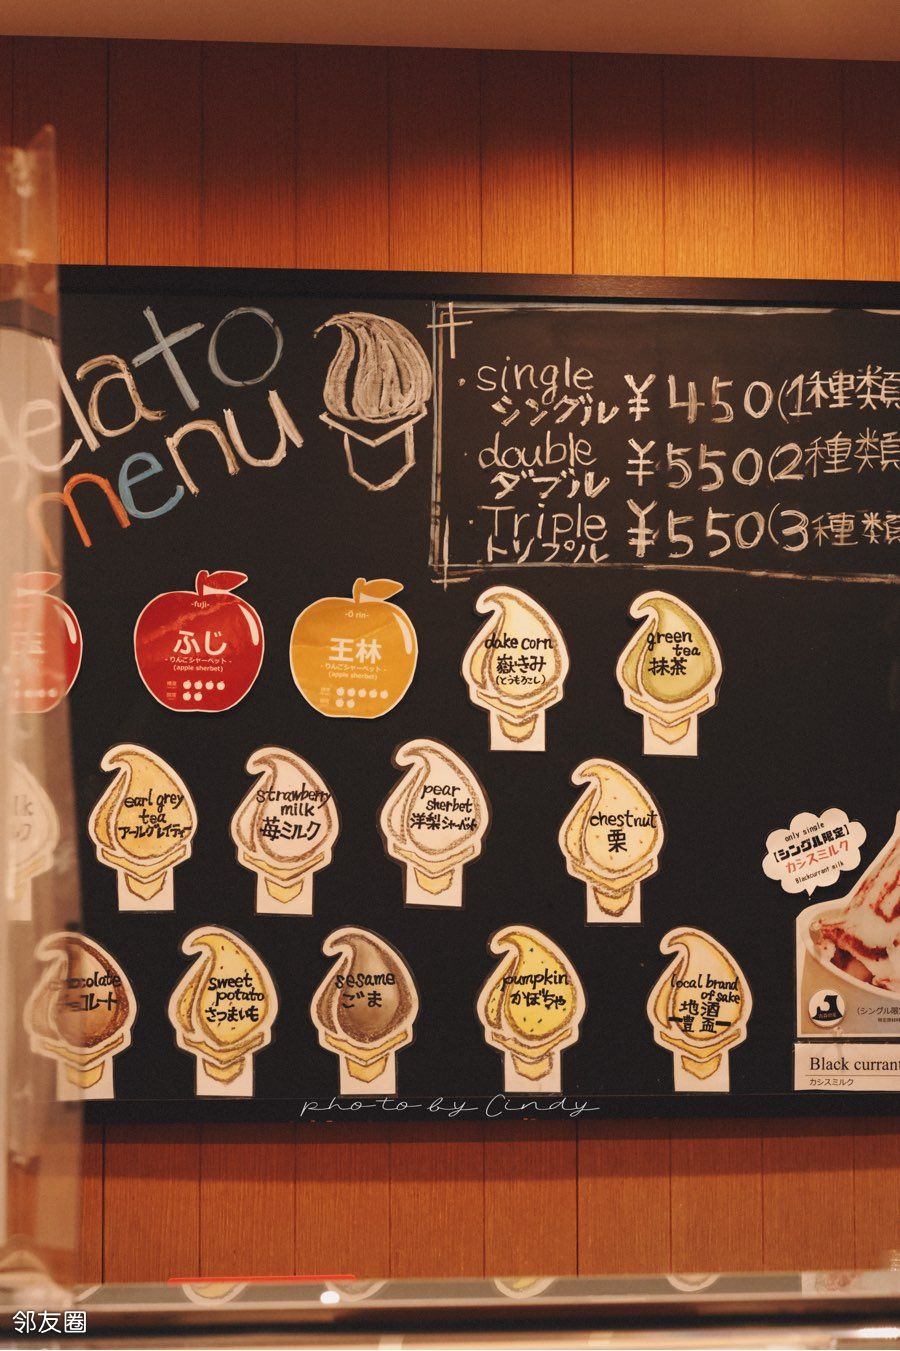 gelato
menu
single ¥450(1種類
シングル
double ¥550(2種類
ダブル
Triple ¥550(3種類
トリプル
玉
-fuji-
ふじ
-りんごシャーベット-
(apple sherbet)
-Ō rin-
王林
-りんごシャーベット-
(apple sherbet)
dake corn
嶽きみ
(とうもろこし)
green
tea
抹茶
lk
earl grey
tea
アールグレイティー
strawberry
milk
苺ミルク
pear
sherbet
洋梨シャーベット
chestnut
栗
only single
【シングル限定】
カシスミルク
Blackcurrant milk
chocolate
チョコレート
sweet
potato
さつまいも
sesame
ごま
pumpkin
かぼちゃ
local brand
of sake
地酒
豊盃
(シングル限
Black curran
カシスミルク
photo by Cindy
邻友圈